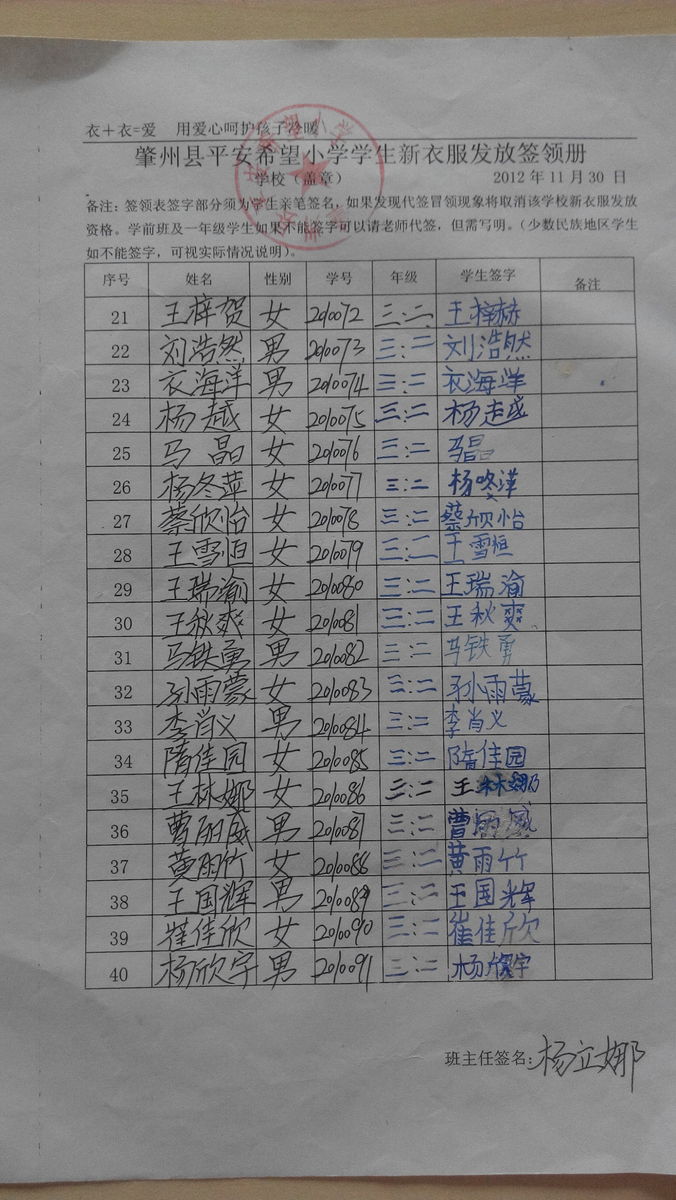 衣＋衣=爱 用爱心呵护孩子冷暖
肇州县平安希望小学学生新衣服发放签领册
学校（盖章） 2012 年 11 月 30 日
备注：签领表签字部分须为学生亲笔签名，如果发现代签冒领现象将取消该学校新衣服发放
资格。学前班及一年级学生如果不能签字可以请老师代签，但需写明。（少数民族地区学生
如不能签字，可视实际情况说明）。
序号 姓名 性别 学号 年级 学生签字 备注
21 王梓贺 女 2010072 三:二 王梓赫
22 刘浩然 男 2010073 三:二 刘浩然
23 衣海洋 男 2010074 三:二 衣海洋
24 杨越 女 2010075 三:二 杨越
25 马晶 女 2010076 三:二 马晶
26 杨冬萍 女 2010077 三:二 杨咚萍
27 蔡欣怡 女 2010078 三:二 蔡欣怡
28 王雪恒 女 2010079 三:二 王雪恒
29 王瑞渝 女 2010080 三:二 王瑞渝
30 王秋爽 女 2010081 三:二 王秋爽
31 马铁勇 男 2010082 三:二 马铁勇
32 孙雨蒙 女 2010083 三:二 孙雨蒙
33 李肖义 男 2010084 三:二 李肖义
34 隋佳园 女 2010085 三:二 隋佳园
35 王林娜 女 2010086 三:二 王林娜
36 曹丽威 男 2010087 三:二 曹丽威
37 黄雨竹 女 2010088 三:二 黄雨竹
38 王国辉 男 2010089 三:二 王国辉
39 崔佳欣 女 2010090 三:二 崔佳欣
40 杨欣宇 男 2010091 三:二 杨欣宇
班主任签名：杨立娜